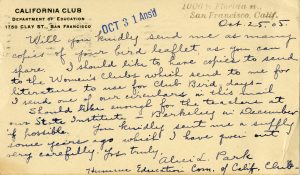 CALIFORNIA CLUB
DEPARTMENT OF EDUCATION
1750 CLAY ST., SAN FRANCISCO
OCT 31 Ansd
1006 Florida
San Francisco, Calif.
Oct. 25. 05
Will you kindly send me as many
copies of your bird leaflet as you can
spare. I should like to have copies to send
to the Women's Clubs which send to me for
literature to use for Club Bird days—
I send one of our circulars in this mail
Should like enough for the teachers at
our State Institute - Berkeley in December
if possible. You kindly sent me a supply
some years ago which I have given out
very carefully. Yrs truly,
Alice L. Park
Humane Education Com. of Calif. Club.